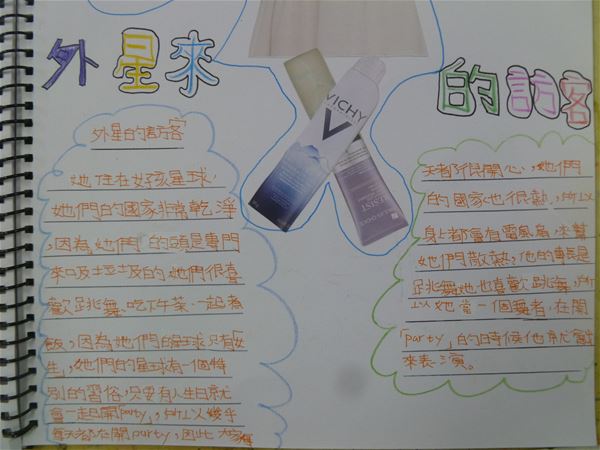 外星來
的訪客
VICHY
外星的訪客
她住在好孩星球,
她們的國家非常乾淨
,因為她們 的頭是專門
來吸垃圾的,她們很喜
歡跳舞、吃下午茶、一起煮
飯,因為她們的星球只有女
生,她們的星球有一個特
別的習俗,只要有人生日就
會一起開party,所以幾乎
每天都在開party,因此 大家每
天都很開心,她們
的國家也很熱,所以
身上都會有電風扇,來幫
她們散熱,他的專長是
跳舞她也喜歡跳舞,所
以她當一個舞者,在開
「party」的時候他就會
來表演。